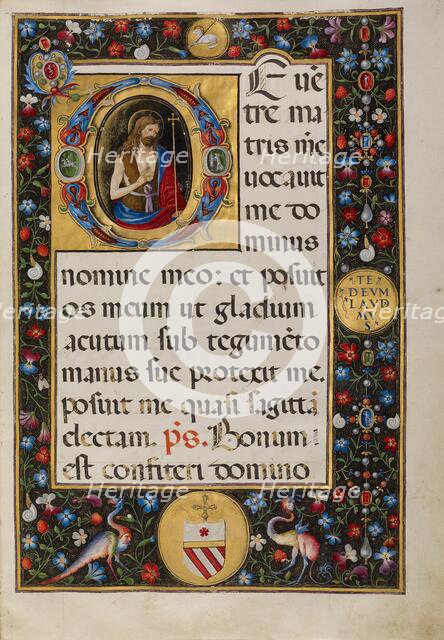 E uẽtre ma
tris me
uocauit
me do
minus
nomine meo: et posuit
os meum ut gladium
acutum sub tegumẽto
manus sue protexit me.
posuit me quasi sagittã
electam. p̃s. Bonum
est confiteri domino
TE
DEVM
LAVD
MV
S
Heritage
Heritage
Heritage
Heritage
Heritage
Heritage